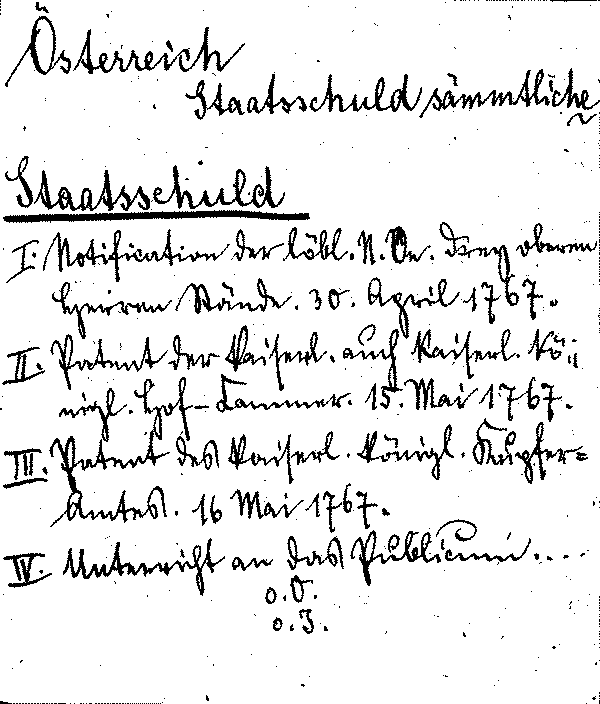 Österreich
Staatsschuld sämmtliche
Staatsschuld
I. Notification der löbl. N. Oe. Drey oberen
Herren Stände. 30. April 1767.
II. Patent der kaiserl. auch kaiserl. kö=
nigl. Hof-Kammer. 15. Mai 1767.
III. Patent des kaiserl. königl. Kupfer=
Amtes. 16 Mai 1767.
IV. Unterricht an das Publicum....
o. O.
o. J.